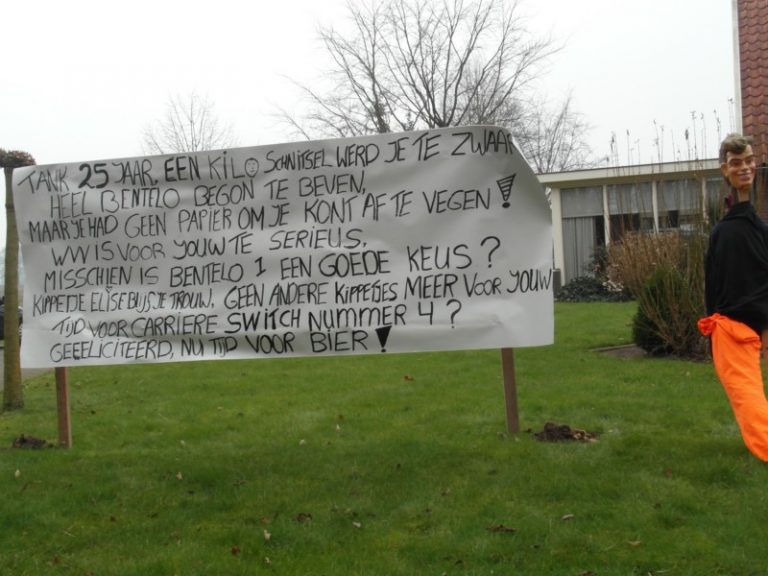 TANK 25 JAAR, EEN KILO SCHNITSEL WERD JE TE ZWAAR
HEEL BENTELO BEGON TE BEVEN,
MAAR JE HAD GEEN PAPIER OM JE KONT AF TE VEGEN!
WW IS VOOR JOUW TE SERIEUS,
MISSCHIEN IS BENTELO 1 EEN GOEDE KEUS?
KIPPETJE ELISE BLIJF JE TROUW, GEEN ANDERE KIPPETJES MEER VOOR JOUW
TIJD VOOR CARRIERE SWITCH NUMMER 4?
GEFELICITEERD, NU TIJD VOOR BIER!